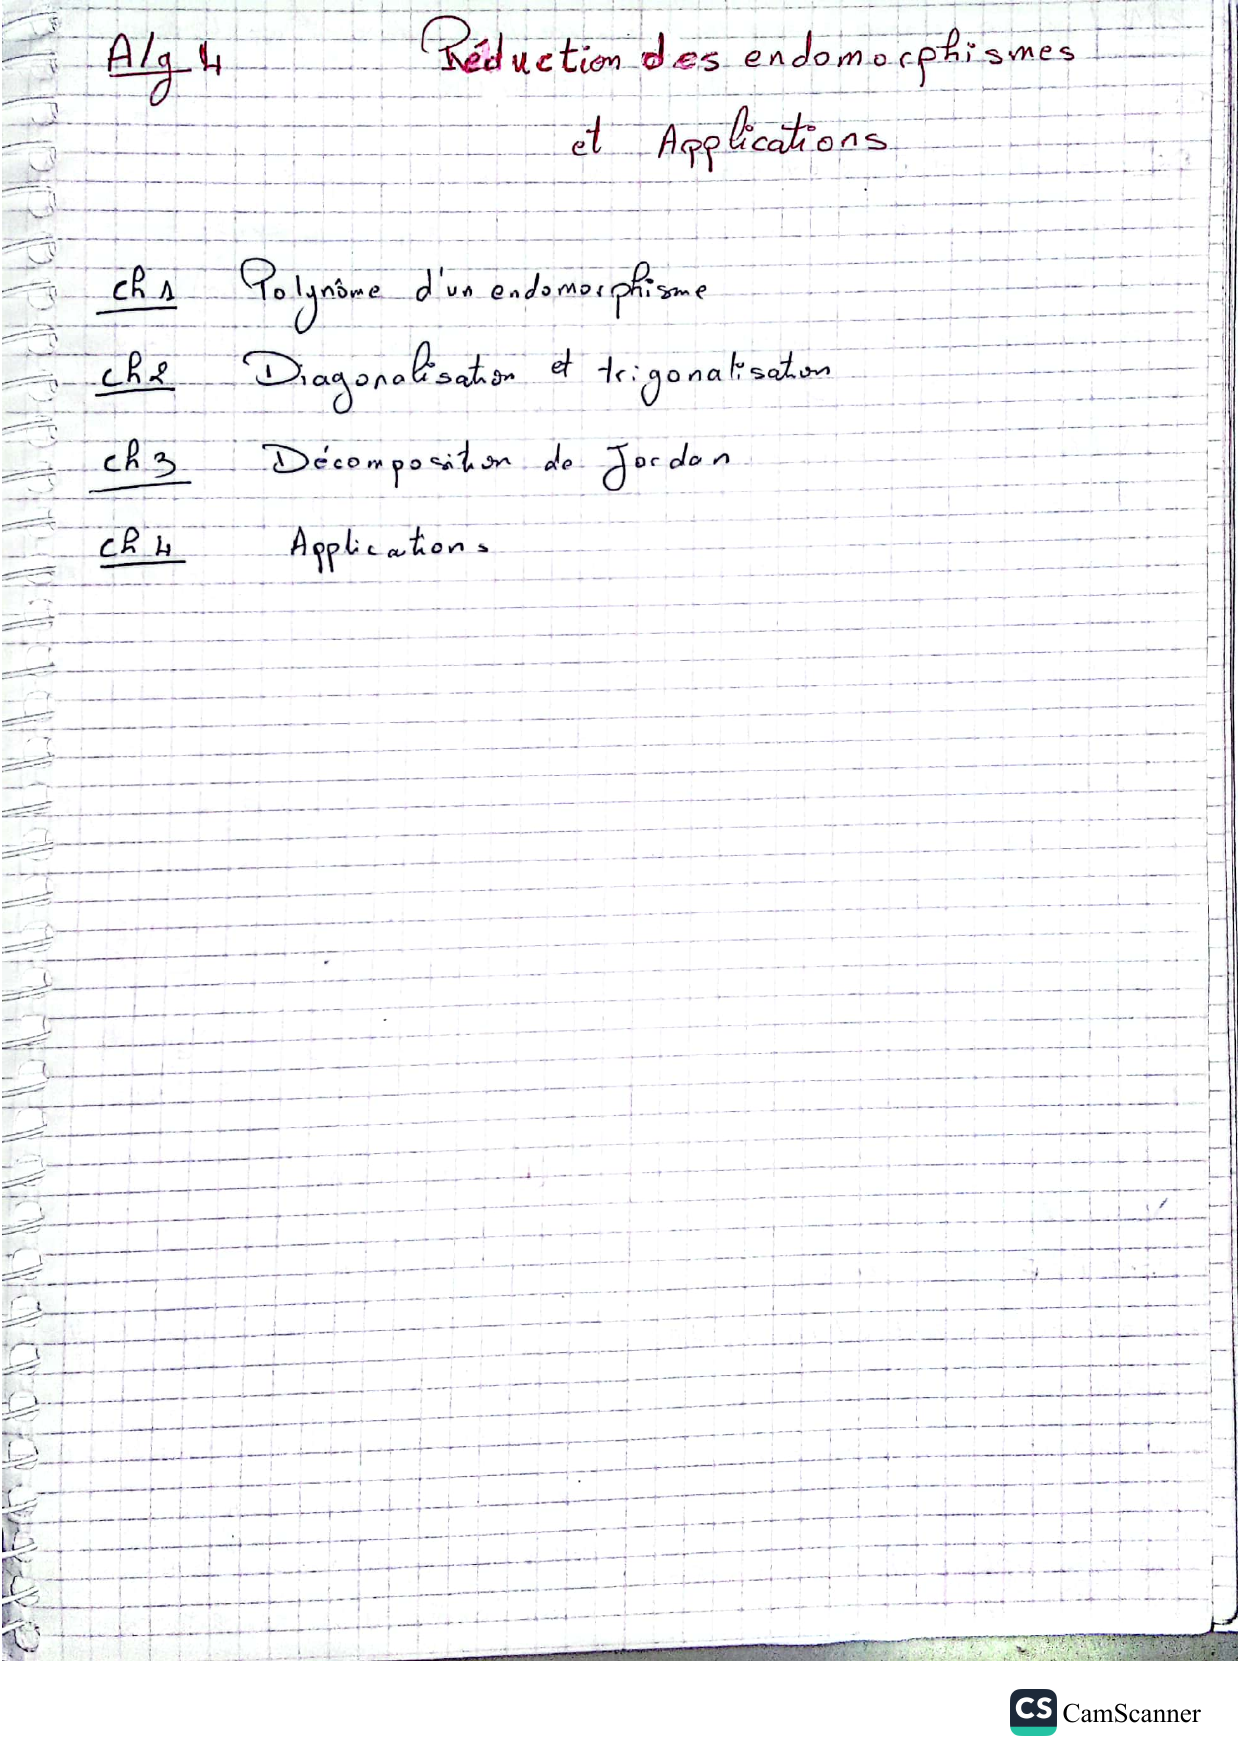 Alg 4 Réduction des endomorphismes
et Applications
ch 1 Polynôme d'un endomorphisme
ch 2 Diagonalisation et trigonalisation
ch 3 Décomposition de Jordan
ch 4 Applications
CS CamScanner